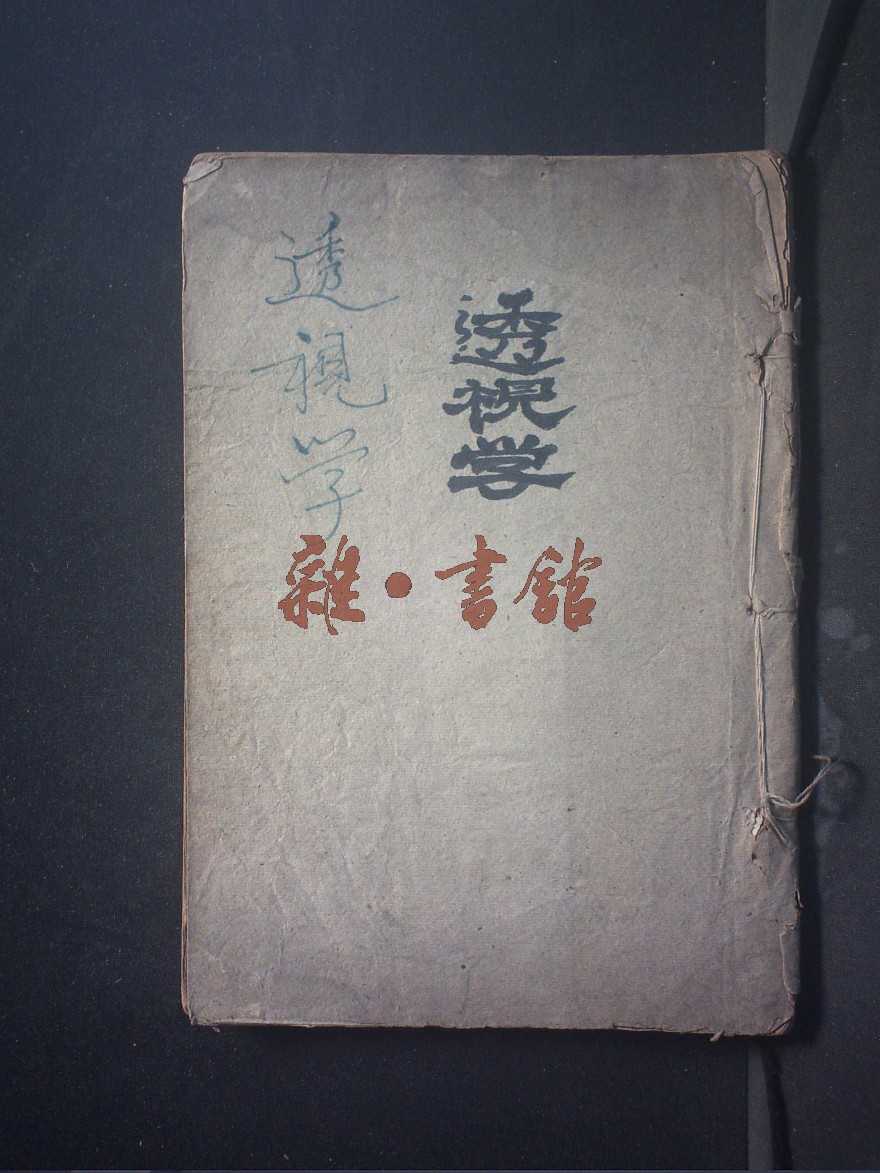 透視学
透視学
雜·書館